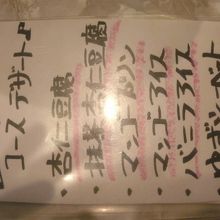 コースデザート♪
・杏仁豆腐
・抹茶杏仁豆腐
・マンゴープリン
・マンゴーアイス
・バニラアイス